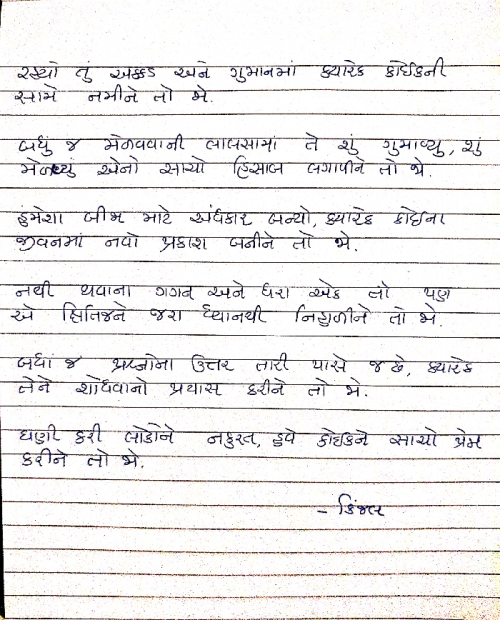 રહ્યો તું અક્કડ અને ગુમાનમાં ક્યારેક કોઈકની
સામે નમીને તો જો.
બધું જ મેળવવાની લાલસામાં તે શું ગુમાવ્યુ, શું
મેળવ્યું એનો સાચો હિસાબ લગાવીને તો જો.
હંમેશા બીજા માટે અંધકાર બન્યો, ક્યારેક કોઈના
જીવનમાં નવો પ્રકાશ બનીને તો જો.
નથી થવાના ગગન અને ધરા એક તો પણ
એ ક્ષિતિજને જરા ધ્યાનથી નિહાળીને તો જો.
બધાં જ પ્રશ્નોના ઉત્તર તારી પાસે જ છે, ક્યારેક
તેને શોધવાનો પ્રયાસ કરીને તો જો.
ઘણી કરી લોકોને નફરત, હવે કોઇકને સાચો પ્રેમ
કરીને તો જો.
- કિંજલ